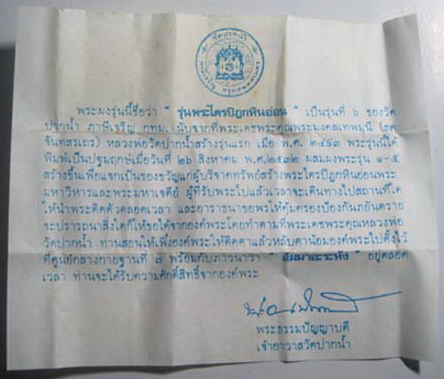 วัดปากน้ำ
พระผงรุ่นนี้ชื่อว่า " รุ่นพระไตรปิฎกหินอ่อน " เป็นรุ่นที่ ๖ ของวัด
ปากน้ำ ภาษีเจริญ กทม. นับจากที่พระเดชพระคุณพระมงคลเทพมุนี (สด
จันทสเถร) หลวงพ่อวัดปากน้ำสร้างรุ่นแรก เมื่อ พ.ศ. ๒๔๙๓ พระรุ่นนี้ได้
พิมพ์เป็นปฐมฤกษ์เมื่อวันที่ ๒๖ สิงหาคม พ.ศ.๒๕๓๒ ผสมผงพระรุ่น ๑-๕
สร้างขึ้นเพื่อแจกเป็นของขวัญแก่ผู้บริจาคทรัพย์สร้างพระไตรปิฎกหินอ่อนพระ
มหาวิหารและพระมหาเจดีย์ ผู้ที่รับพระไปแล้วเวลาจะเดินทางไปสถานที่ใด
ให้นำพระติดตัวตลอดเวลา และอาราธนาขอพรให้คุ้มครองป้องกันภยันตราย
จะปรารถนาสิ่งใดก็ให้ขอได้จากองค์พระโดยทำตามที่พระเดชพระคุณหลวงพ่อ
วัดปากน้ำ ท่านสอนให้เพ่งองค์พระให้ติดตาแล้วหลับตาน้อมองค์พระไปตั้งไว้
ที่ศูนย์กลางกายฐานที่ ๗ พร้อมกับภาวนาว่า " สัมมาอะระหัง " อยู่ตลอด
เวลา ท่านจะได้รับความศักดิ์สิทธิ์จากองค์พระ
พระธรรมปัญญาบดี
เจ้าอาวาสวัดปากน้ำ